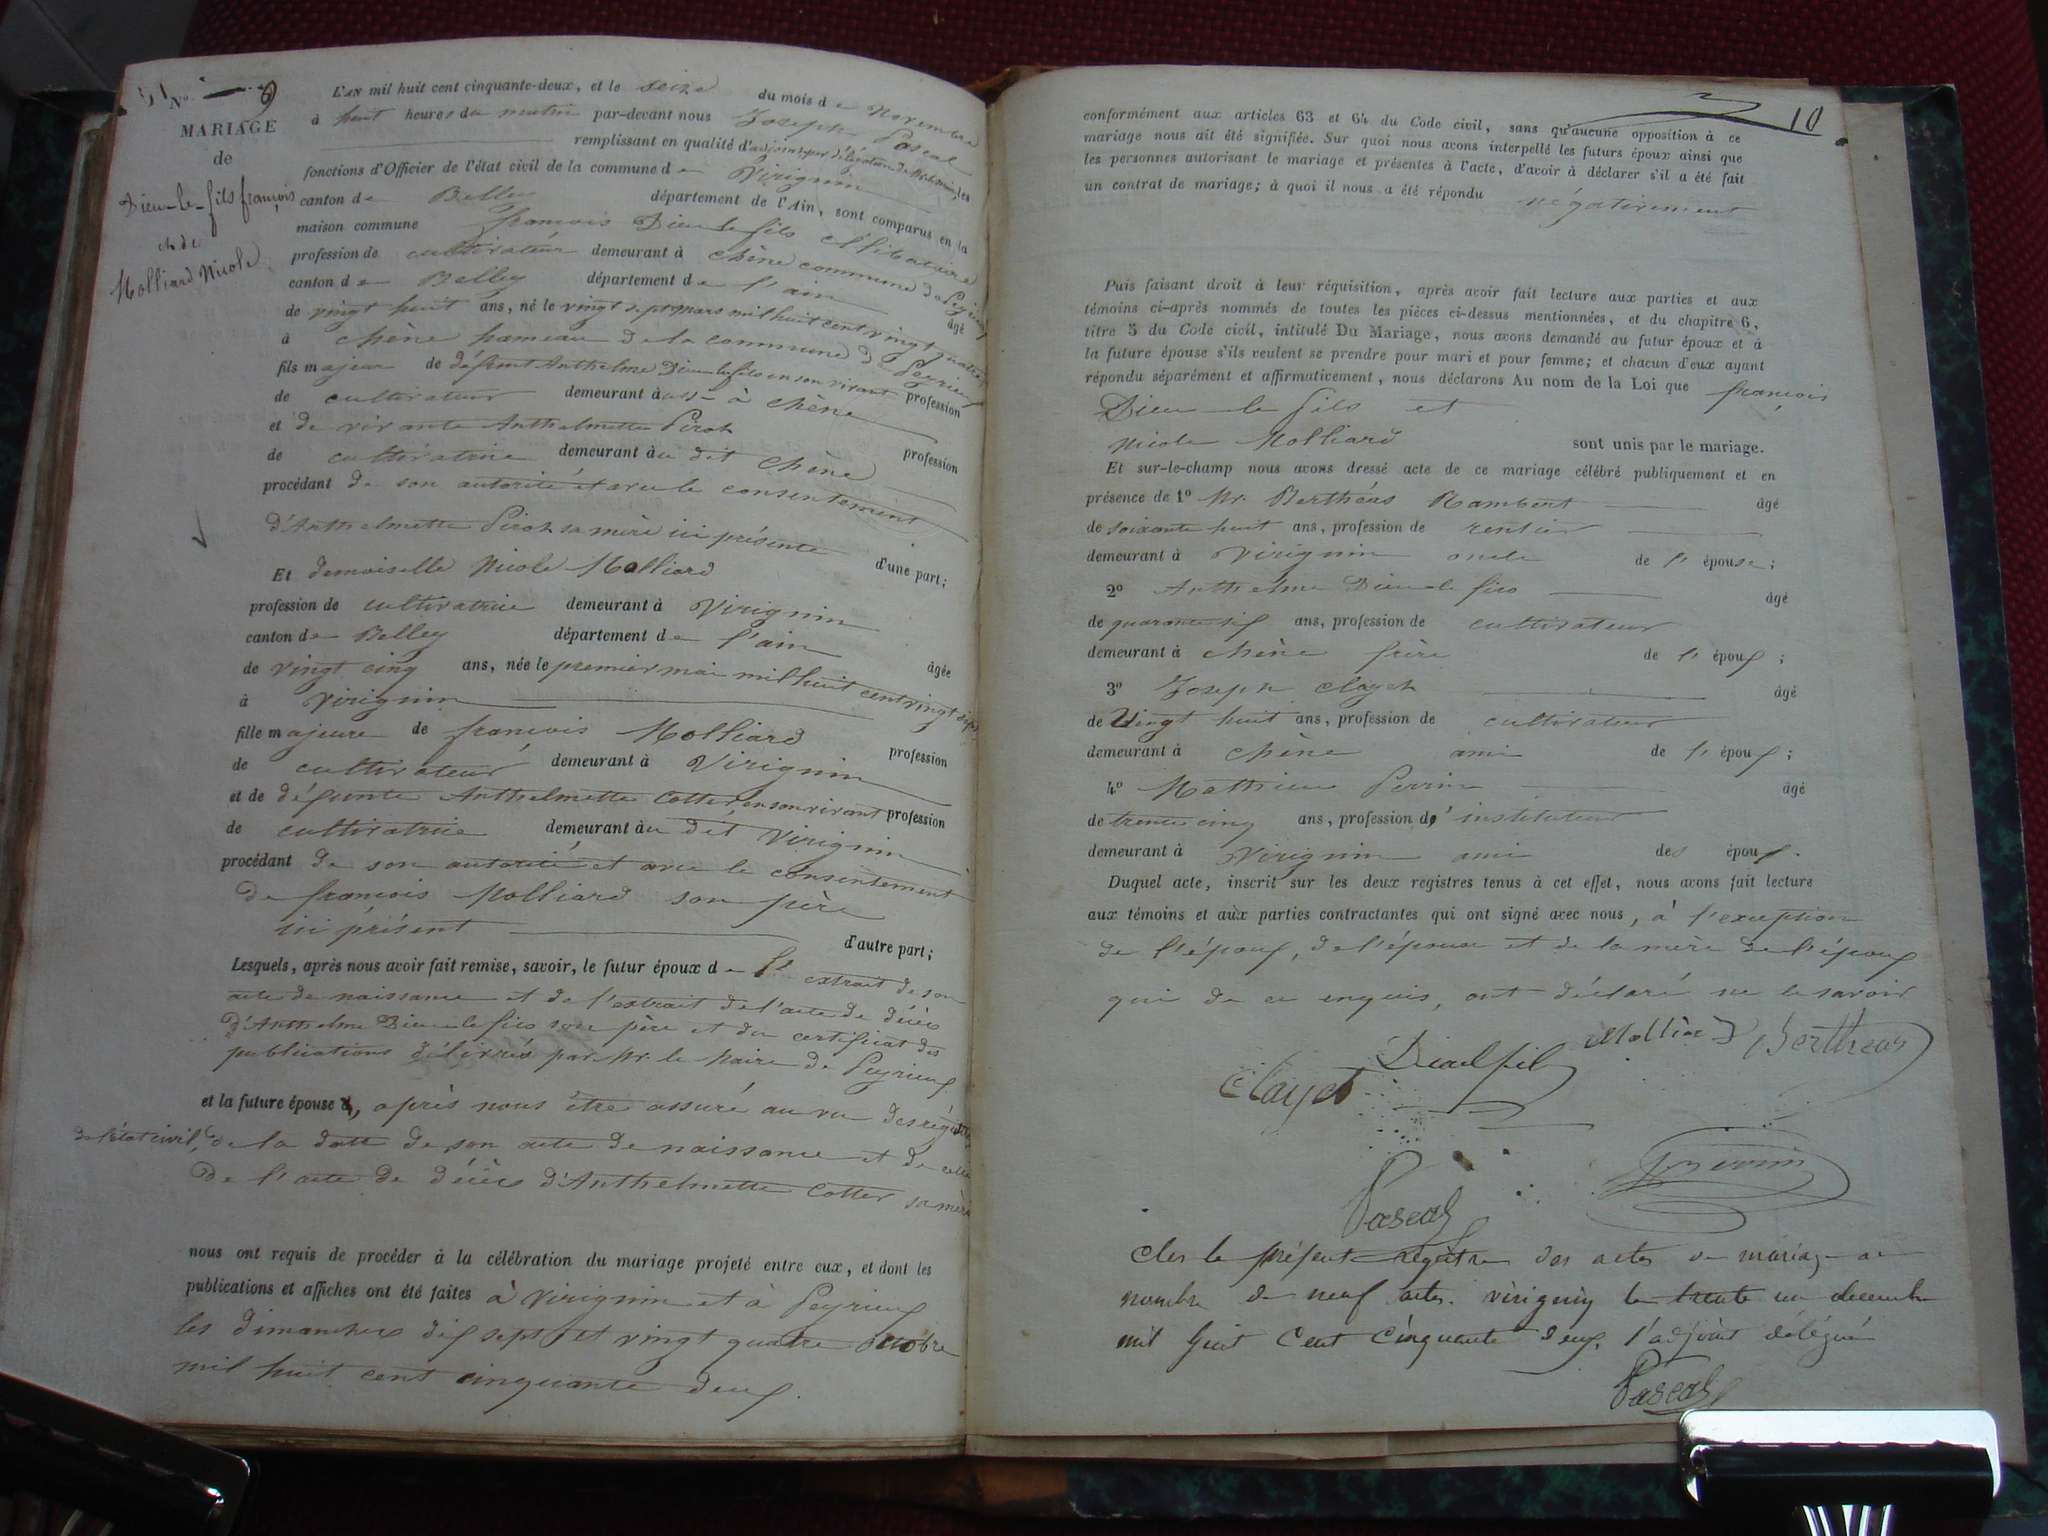 N° 9
MARIAGE
de
Dieu-le-fils françois
et de
Molliard Nicole
L'AN mil huit cent cinquante-deux, et le seize du mois de Novembre
à huit heures du matin par-devant nous Joseph Pascal
remplissant en qualité d'adjoint par délégation de les
fonctions d'Officier de l'état civil de la commune de Virignin
canton de Belley département de l'Ain, sont comparus en la
maison commune françois Dieu le fils célibataire
profession de cultivateur demeurant à chêne commune de Peyrieux
canton de Belley département de l'ain âgé
de vingt huit ans, né le vingt sept mars mil huit cent vingt quatre
à chêne hameau de la commune de Peyrieux
fils majeur de défunt Anthelme Dieu le fils en son vivant profession
de cultivateur demeurant à chêne
et de vivante Anthelmette Pirot profession
de cultivatrice demeurant au dit chêne
procédant de son autorité et avec le consentement
d'Anthelmette Pirot sa mère ici présente
d'une part;
Et demoiselle Nicole Molliard
profession de cultivatrice demeurant à Virignin
canton de Belley département de l'ain âgée
de vingt cinq ans, née le premier mai mil huit cent vingt sept
à Virignin
fille majeure de françois Molliard profession
de cultivateur demeurant à Virignin
et de défunte Anthelmette Cotter, en son vivant profession
de cultivatrice demeurant au dit Virignin
procédant de son autorité et avec le consentement
de françois Molliard son père
ici présent
d'autre part;
Lesquels, après nous avoir fait remise, savoir, le futur époux de l'extrait de son
acte de naissance et de l'extrait de l'acte de décès
d'Anthelme Dieu le fils son père et du certificat des
publications délivrés par Mr. le Maire de Peyrieux
et la future épouse, après nous être assuré au vu des régistres
de l'état civil, de la datte de son acte de naissance et de celle
de l'acte de décès d'Anthelmette Cotter sa mère
nous ont requis de procéder à la célébration du mariage projeté entre eux, et dont les
publications et affiches ont été faites à Virignin et à Peyrieux
les dimanches dix sept et vingt quatre octobre
mil huit cent cinquante deux.
10
conformément aux articles 63 et 64 du Code civil, sans qu'aucune opposition à ce
mariage nous ait été signifiée. Sur quoi nous avons interpellé les futurs époux ainsi que
les personnes autorisant le mariage et présentes à l'acte, d'avoir à déclarer s'il a été fait
un contrat de mariage; à quoi il nous a été répondu négativement
Puis faisant droit à leur réquisition, après avoir fait lecture aux parties et aux
témoins ci-après nommés de toutes les pièces ci-dessus mentionnées, et du chapitre 6,
titre 5 du Code civil, intitulé Du Mariage, nous avons demandé au futur époux et à
la future épouse s'ils veulent se prendre pour mari et pour femme; et chacun d'eux ayant
répondu séparément et affirmativement, nous déclarons Au nom de la Loi que françois
Dieu le fils et
Nicole Molliard sont unis par le mariage.
Et sur-le-champ nous avons dressé acte de ce mariage célébré publiquement et en
présence de 1° Mr. Berthéas Rambert âgé
de soixante huit ans, profession de rentier
demeurant à Virignin oncle de l'épouse;
2° Anthelme Dieu le fils âgé
de quarante six ans, profession de cultivateur
demeurant à chêne frère de l'époux;
3° Joseph Clayet âgé
de vingt huit ans, profession de cultivateur
demeurant à chêne ami de l'époux;
4° Mathieu Perrin âgé
de trente cinq ans, profession d'instituteur
demeurant à Virignin ami des époux.
Duquel acte, inscrit sur les deux registres tenus à cet effet, nous avons fait lecture
aux témoins et aux parties contractantes qui ont signé avec nous, à l'exception
de l'époux, de l'épouse et de la mère de l'époux
qui de ce enquis, ont déclaré ne le savoir
Molliard Bertheas
Clayet Dieulfil
Perrin
Pascal
Clos le présent régistre des actes de mariage au
nombre de neuf actes. virignin le trente un decembre
mil huit cent cinquante deux. l'adjoint délégué
Pascal